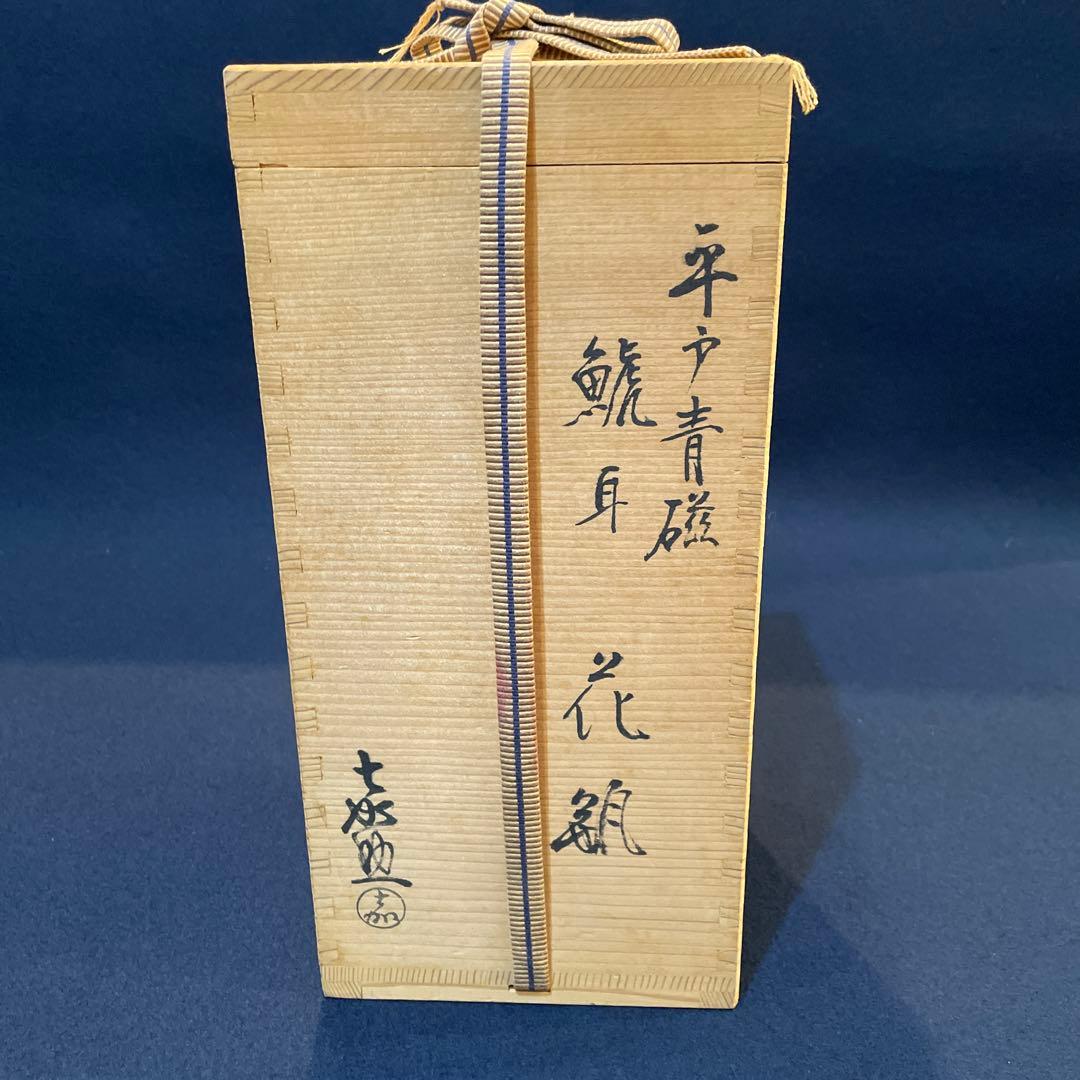 平戸青磁
鯱耳 花瓶
嘉助
嘉